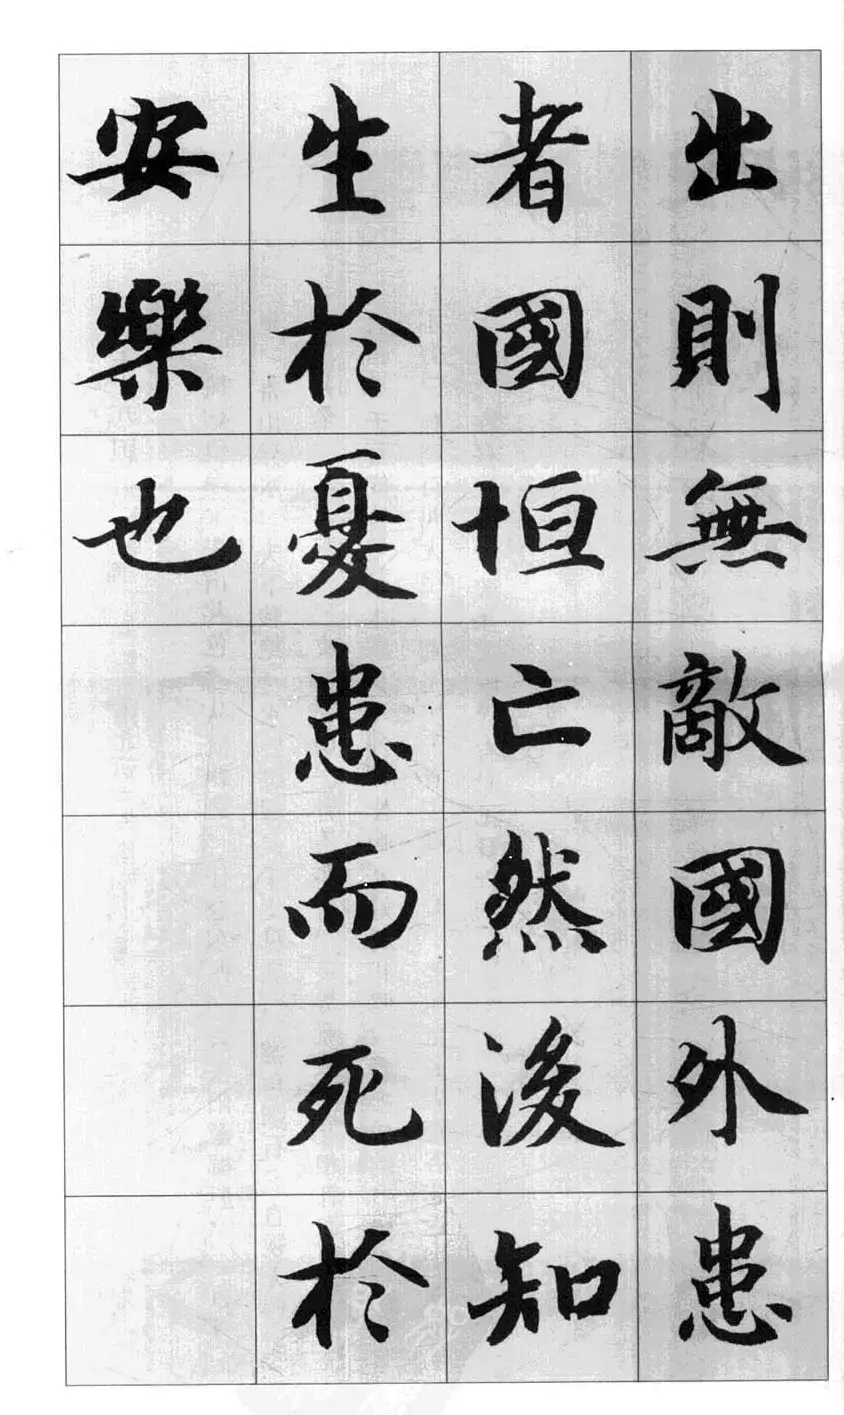 出則無敵國外患
者國恒亡然後知
生於憂患而死於
安樂也